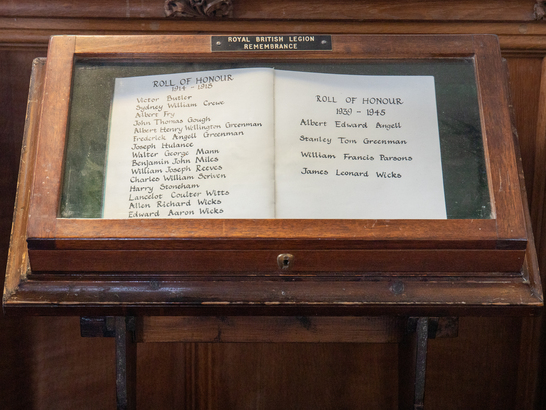 ROYAL BRITISH LEGION
REMEMBRANCE
ROLL OF HONOUR
1914 - 1918
Victor Butler
Sydney William Crew
Albert Fry
John Thomas Gough
Albert Henry Wellington Greenman
Frederick Angell Greenman
Joseph Hulance
Walter George Mann
Benjamin John Miles
William Joseph Reeves
Charles William Scriven
Harry Stoneham
Lancelot Coulter Witts
Allen Richard Wicks
Edward Aaron Wicks
ROLL OF HONOUR
1939 - 1945
Albert Edward Angell
Stanley Tom Greenman
William Francis Parsons
James Leonard Wicks